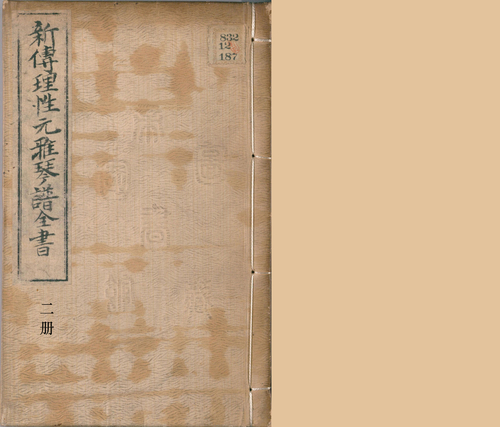 新傳理性元雅琴譜全書
二册
832
12
187